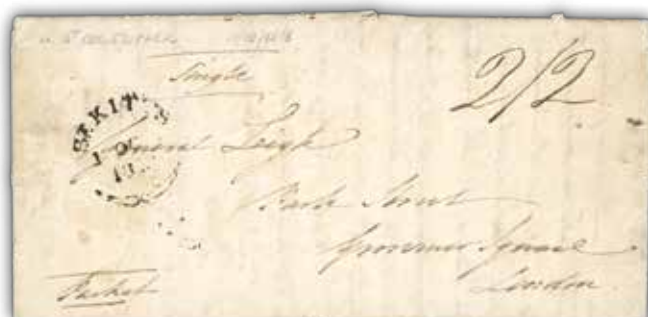 Single
2/2
ST. KITTS
General Leigh
Park Street
Grosvenor Square
London.
Packet